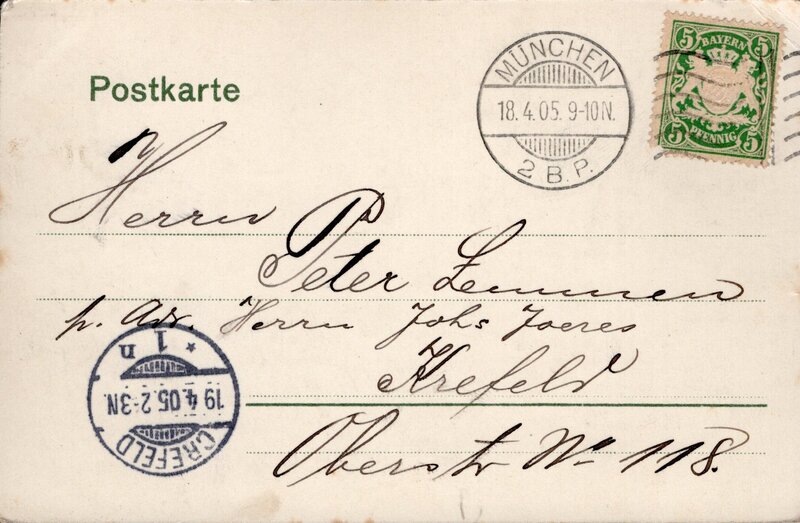 Postkarte
MÜNCHEN
18.4.05. 9-10N.
2 B.P.
5 5
BAYERN
PFENNIG
5 5
Herrn
Peter Lemmen
p. Adr. Herrn Johs Joeres
Krefeld
Oberstr No 118.
CREFELD
19.4.05. 2-3N.
* 1 n